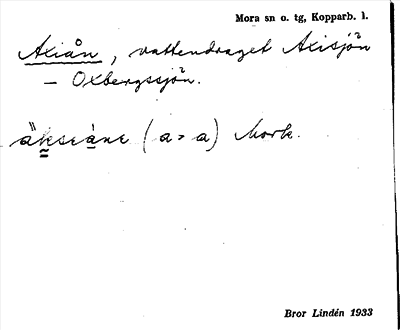 Mora sn o. tg, Kopparb. l.
Axiån, vattendraget Axisjön
– Oxbergssjön.
(a > a)
Bror Lindén 1933